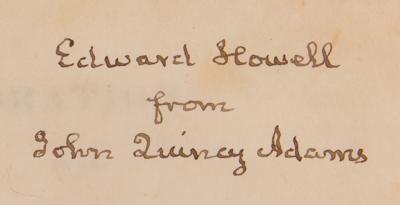 Edward Howell
from
John Quincy Adams